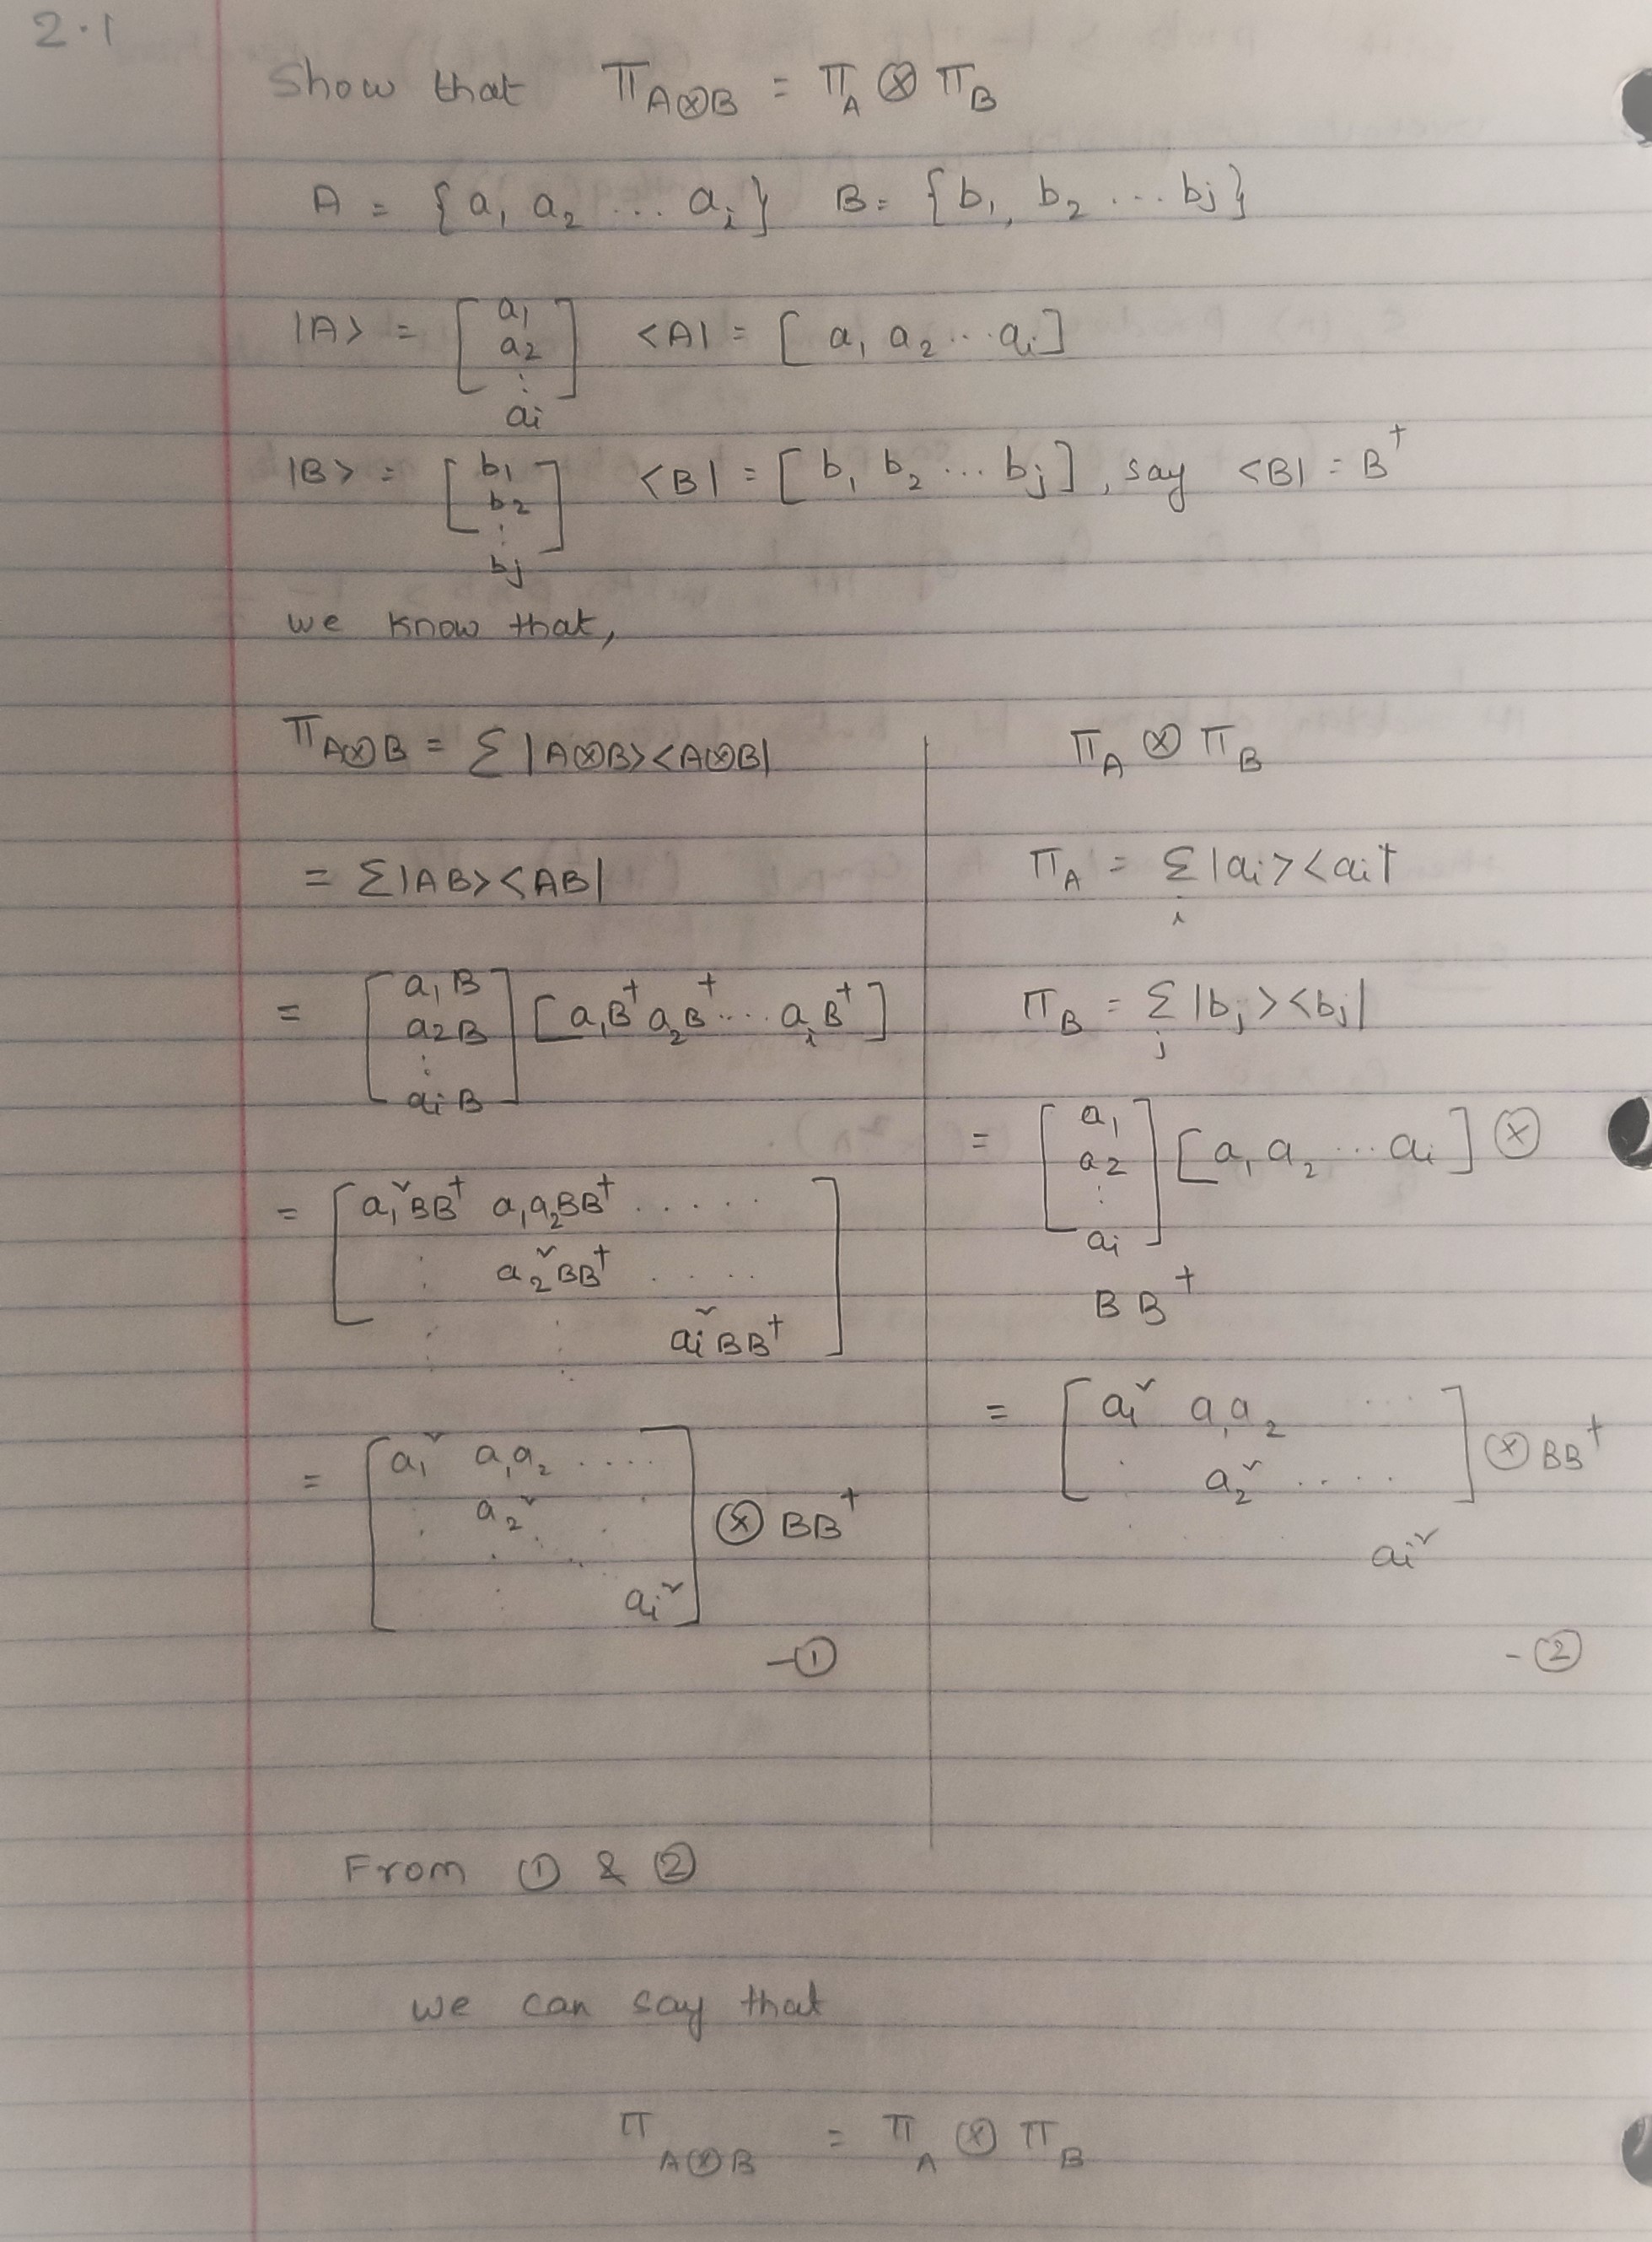 2.1
Show that Π_{A⊗B} = Π_A ⊗ Π_B
A = {a₁ a₂ ... aᵢ} B = {b₁, b₂ ... bⱼ}
|A> = [a₁ a₂ ⋮ aᵢ] <A| = [a₁ a₂ ... aᵢ]
|B> = [b₁ b₂ ⋮ bⱼ] <B| = [b₁ b₂ ... bⱼ], say <B| = B†
we know that,
Π_{A⊗B} = Σ |A⊗B><A⊗B|
= Σ|AB><AB|
= [a₁B a₂B ⋮ aᵢB] [a₁B† a₂B† .... aᵢB†]
= [a₁²BB† a₁a₂BB† ......
⋮ a₂²BB† .....
⋮ ⋮ aᵢ²BB†]
= [a₁² a₁a₂ ....
. a₂² . .
. aᵢ²] ⊗ BB†
-①
Π_A ⊗ Π_B
Π_A = Σᵢ |aᵢ><aᵢ|
Π_B = Σⱼ |bⱼ><bⱼ|
= [a₁ a₂ ⋮ aᵢ] [a₁ a₂ ... aᵢ] ⊗
BB†
= [a₁² a₁a₂ ...
. a₂² .....
aᵢ²] ⊗ BB†
-②
From ① & ②
we can say that
Π_{A⊗B} = Π_A ⊗ Π_B